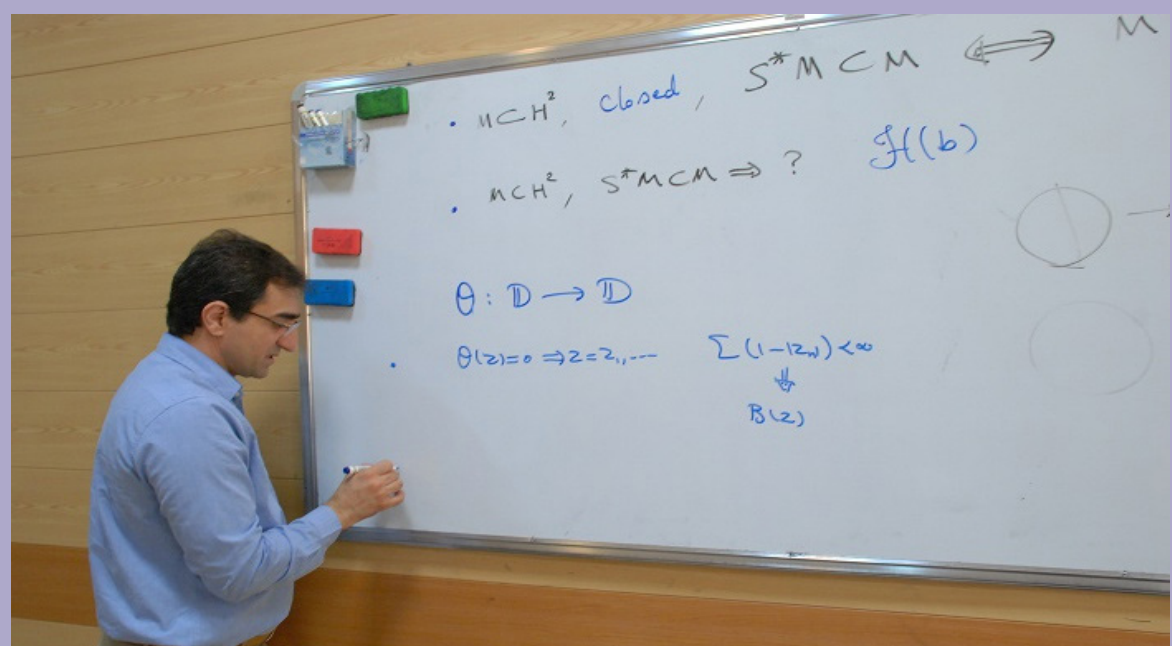 • M⊂H², closed, S*M⊂M ⟺ M
• M⊂H², S*M⊂M ⇒ ? ℋ(b)
Θ : 𝔻 → 𝔻
• Θ(z)=0 ⇒ z=z₁,... Σ(1-|zₙ|)<∞
⇓
B(z)